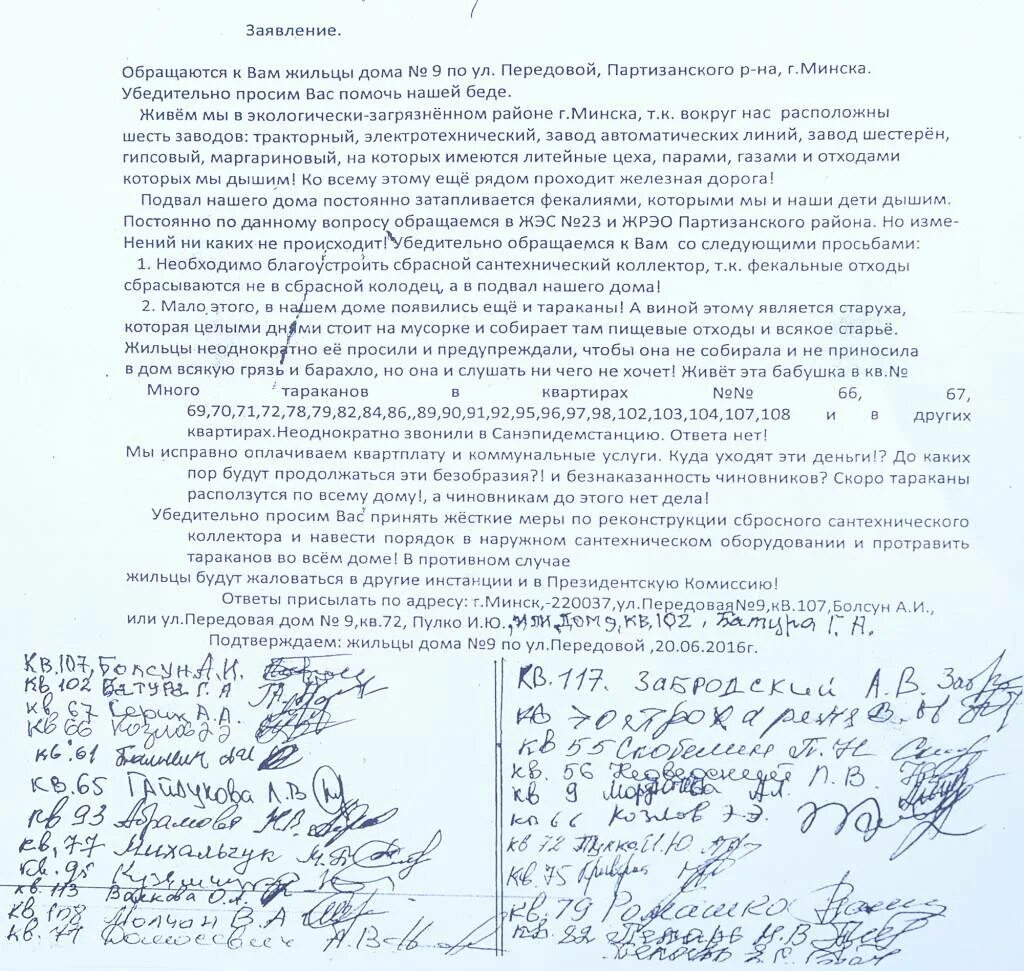 Заявление.
Обращаются к Вам жильцы дома № 9 по ул. Передовой, Партизанского р-на, г.Минска.
Убедительно просим Вас помочь нашей беде.
Живём мы в экологически-загрязнённом районе г.Минска, т.к. вокруг нас расположны
шесть заводов: тракторный, электротехнический, завод автоматических линий, завод шестерён,
гипсовый, маргариновый, на которых имеются литейные цеха, парами, газами и отходами
которых мы дышим! Ко всему этому ещё рядом проходит железная дорога!
Подвал нашего дома постоянно затапливается фекалиями, которыми мы и наши дети дышим.
Постоянно по данному вопросу обращаемся в ЖЭС №23 и ЖРЭО Партизанского района. Но изме-
Нений ни каких не происходит! Убедительно обращаемся к Вам со следующими просьбами:
1. Необходимо благоустроить сбрасной сантехнический коллектор, т.к. фекальные отходы
сбрасываются не в сбрасной колодец, а в подвал нашего дома!
2. Мало этого, в нашем доме появились ещё и тараканы! А виной этому является старуха,
которая целыми днями стоит на мусорке и собирает там пищевые отходы и всякое старьё.
Жильцы неоднократно её просили и предупреждали, чтобы она не собирала и не приносила
в дом всякую грязь и барахло, но она и слушать ни чего не хочет! Живёт эта бабушка в кв.№
Много тараканов в квартирах №№ 66, 67,
69,70,71,72,78,79,82,84,86,,89,90,91,92,95,96,97,98,102,103,104,107,108 и в других
квартирах.Неоднократно звонили в Санэпидемстанцию. Ответа нет!
Мы исправно оплачиваем квартплату и коммунальные услуги. Куда уходят эти деньги!? До каких
пор будут продолжаться эти безобразия?! и безнаказанность чиновников? Скоро тараканы
расползутся по всему дому!, а чиновникам до этого нет дела!
Убедительно просим Вас принять жёсткие меры по реконструкции сбросного сантехнического
коллектора и навести порядок в наружном сантехническом оборудовании и протравить
тараканов во всём доме! В противном случае
жильцы будут жаловаться в другие инстанции и в Президентскую Комиссию!
Ответы присылать по адресу: г.Минск,-220037,ул.Передовая№9,кв.107,Болсун А.И.,
или ул.Передовая дом № 9,кв.72, Пулко И.Ю., или дом 9, кв,102, Батура Г.А.
Подтверждаем: жильцы дома №9 по ул.Передовой ,20.06.2016г.
кв.107, Болсун А.И.
кв.102 Батура Г.А
кв. 67 А.А.
кв 66 Козлов
кв.61
кв.65 Гайдукова Л.В
кв 93 Абрамова Н.В.
кв,77 Михальчук М.
кв.95
кв.113 Валкова О.
кв.108 Молчан В.А
кв.71 А.В
кв.117. Забродский А.В.
кв
кв 55 Скобелин П.Н
кв. 56 Л.В.
кв 9
кв 66 Козлов Э.Э.
кв 72 Пулко И.Ю.
кв.75
кв.79 Ромашко
кв.82 Н.В